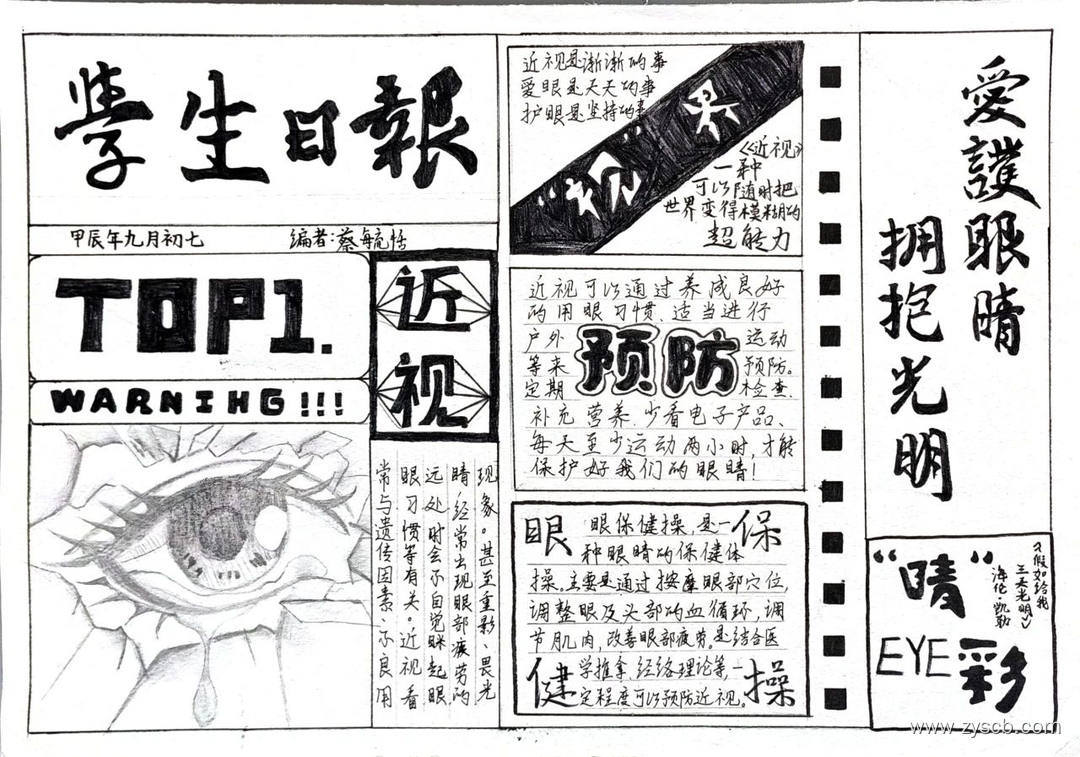 學生日報
甲辰年九月初七
编者:蔡毓
TOP1.
WARNIHG!!!
近视
常与遗传因素、不良用
眼习惯等有关。近视看
远处时会不自觉眯起眼
睛,经常出现眼部疲劳的
现象。甚至重影、畏光
近视是渐渐的事
爱眼是天天的事
护眼是坚持的事
“视”界
《近视》
一种
可以随时把
世界变得模糊的
超能力
近视可以通过养成良好
的用眼习惯、适当进行
户外运动
等来预防。
定期检查.
预防
补充营养.少看电子产品、
每天至少运动两小时,才能
保护好我们的眼睛!
眼保健操
眼保健操,是一
种眼睛的保健体
操,主要是通过按摩眼部穴位,
调整眼及头部的血循环,调
节肌肉,改善眼部疲劳。是结合医
学推拿、经络理论等,一
定程度可以预防近视。
愛護眼睛
拥抱光明
“睛”
EYE彩
《假如给我
三天光明》
海伦·凯勒
www.zyscb.com